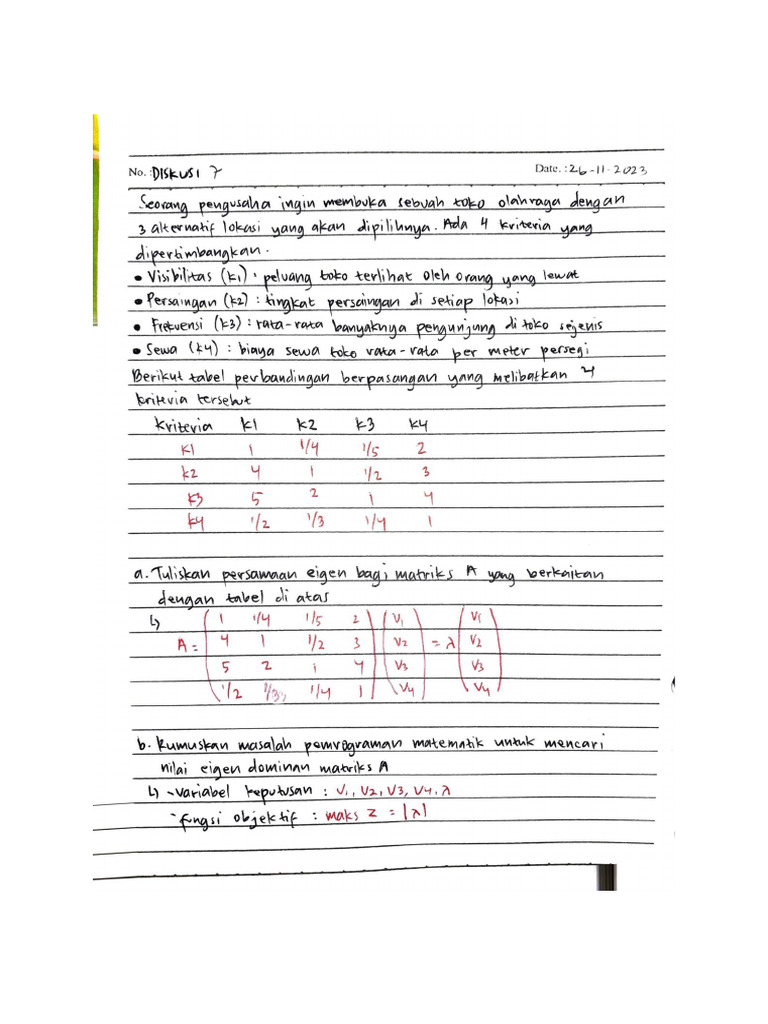 No. : DISKUSI 7 Date. : 26-11-2023
Seorang pengusaha ingin membuka sebuah toko olahraga dengan
3 alternatif lokasi yang akan dipilihnya. Ada 4 kriteria yang
dipertimbangkan.
• Visibilitas (K1) : peluang toko terlihat oleh orang yang lewat
• Persaingan (K2) : tingkat persaingan di setiap lokasi
• Frekuensi (K3) : rata-rata banyaknya pengunjung di toko sejenis
• Sewa (K4) : biaya sewa toko rata-rata per meter persegi
Berikut tabel perbandingan berpasangan yang melibatkan 4
kriteria tersebut
Kriteria K1 K2 K3 K4
K1 1 1/4 1/5 2
K2 4 1 1/2 3
K3 5 2 1 4
K4 1/2 1/3 1/4 1
a. Tuliskan persamaan eigen bagi matriks A yang berkaitan
dengan tabel di atas
↳ 1 1/4 1/5 2 V1 V1
A = 4 1 1/2 3 V2 = λ V2
5 2 1 4 V3 V3
1/2 1/3 1/4 1 V4 V4
b. Rumuskan masalah pemrograman matematik untuk mencari
nilai eigen dominan matriks A
↳ - Variabel keputusan : V1, V2, V3, V4, λ
- fungsi objektif : maks Z = |λ|